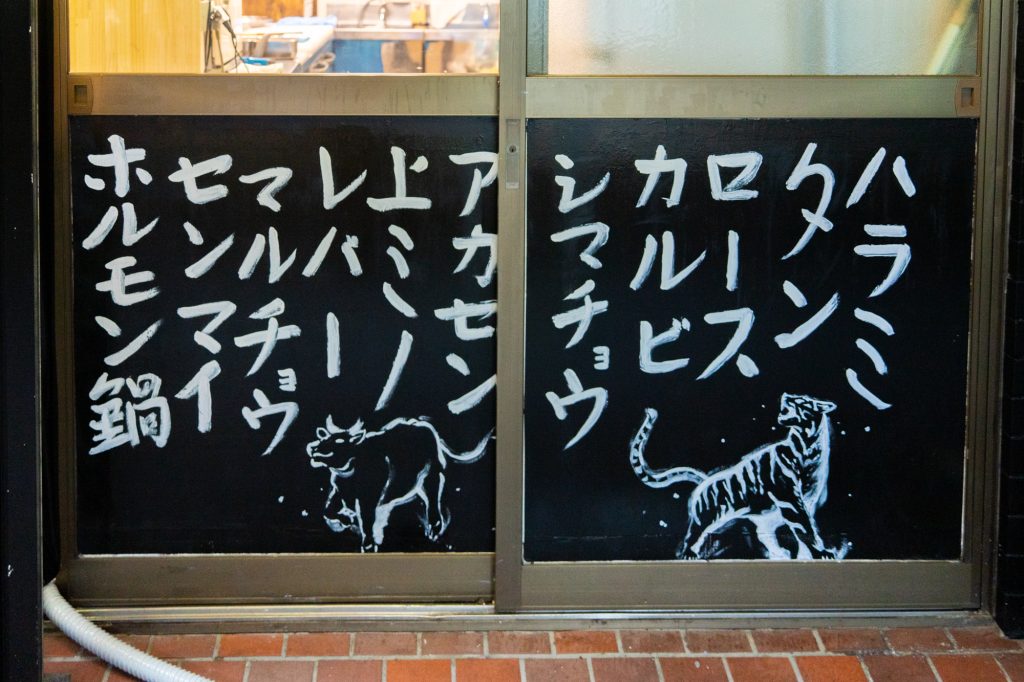 ハラミ
タン
ロース
カルビ
シマチョウ
アカセン
上ミノ
レバー
マルチョウ
センマイ
ホルモン鍋